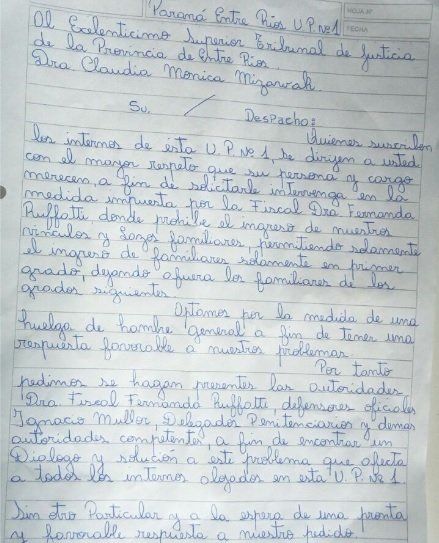 HOJA Nº
FECHA
Paraná Entre Rios U.P. Nº1
Al Exelenticimo Superior Tribunal de Justicia
de la Provincia de Entre Rios.
Dra Claudia Monica Mizawak.
Su. / Despacho:
Quienes suscriben
los internos de esta U.P. Nº 1, se dirijen a usted
con el mayor respeto que su persona y cargo
merecen, a fin de solicitarle intervenga en la
medida impuesta por la Fiscal Dra Fernanda
Ruffatti, donde prohibe el ingreso de nuestros
vinculos y Lazos familiares, permitiendo solamente
el ingreso de familiares solamente en primer
grado, dejando afuera los familiares de los
grados siguientes.
Optamos por la medida de una
huelga de hambre general a fin de tener una
respuesta favorable a nuestros problemas.
Por tanto
pedimos se hagan presentes las autoridades
Dra Fiscal Fernanda Ruffatti, defensores oficiales
Ignacio Mullor, Delegados Penitenciarios y demas
autoridades competentes, a fin de encontrar un
Dialogo y solución a este problema que afecta
a todos los internos alojados en esta U.P. Nº 1.
Sin otro Particular y a la espera de una pronta
y favorable respuesta a nuestro pedido.